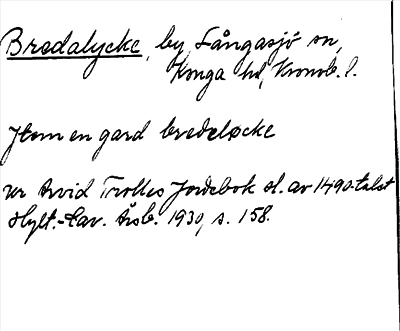 Bredalycke, by, Långasjö sn,
Konga hd, Kronob. l.
Item en gard bredeløcke
ur Arvid Trolles Jordebok sl. av 1490-talet
Hylt.-Cav. Årsb. 1930, s. 158.